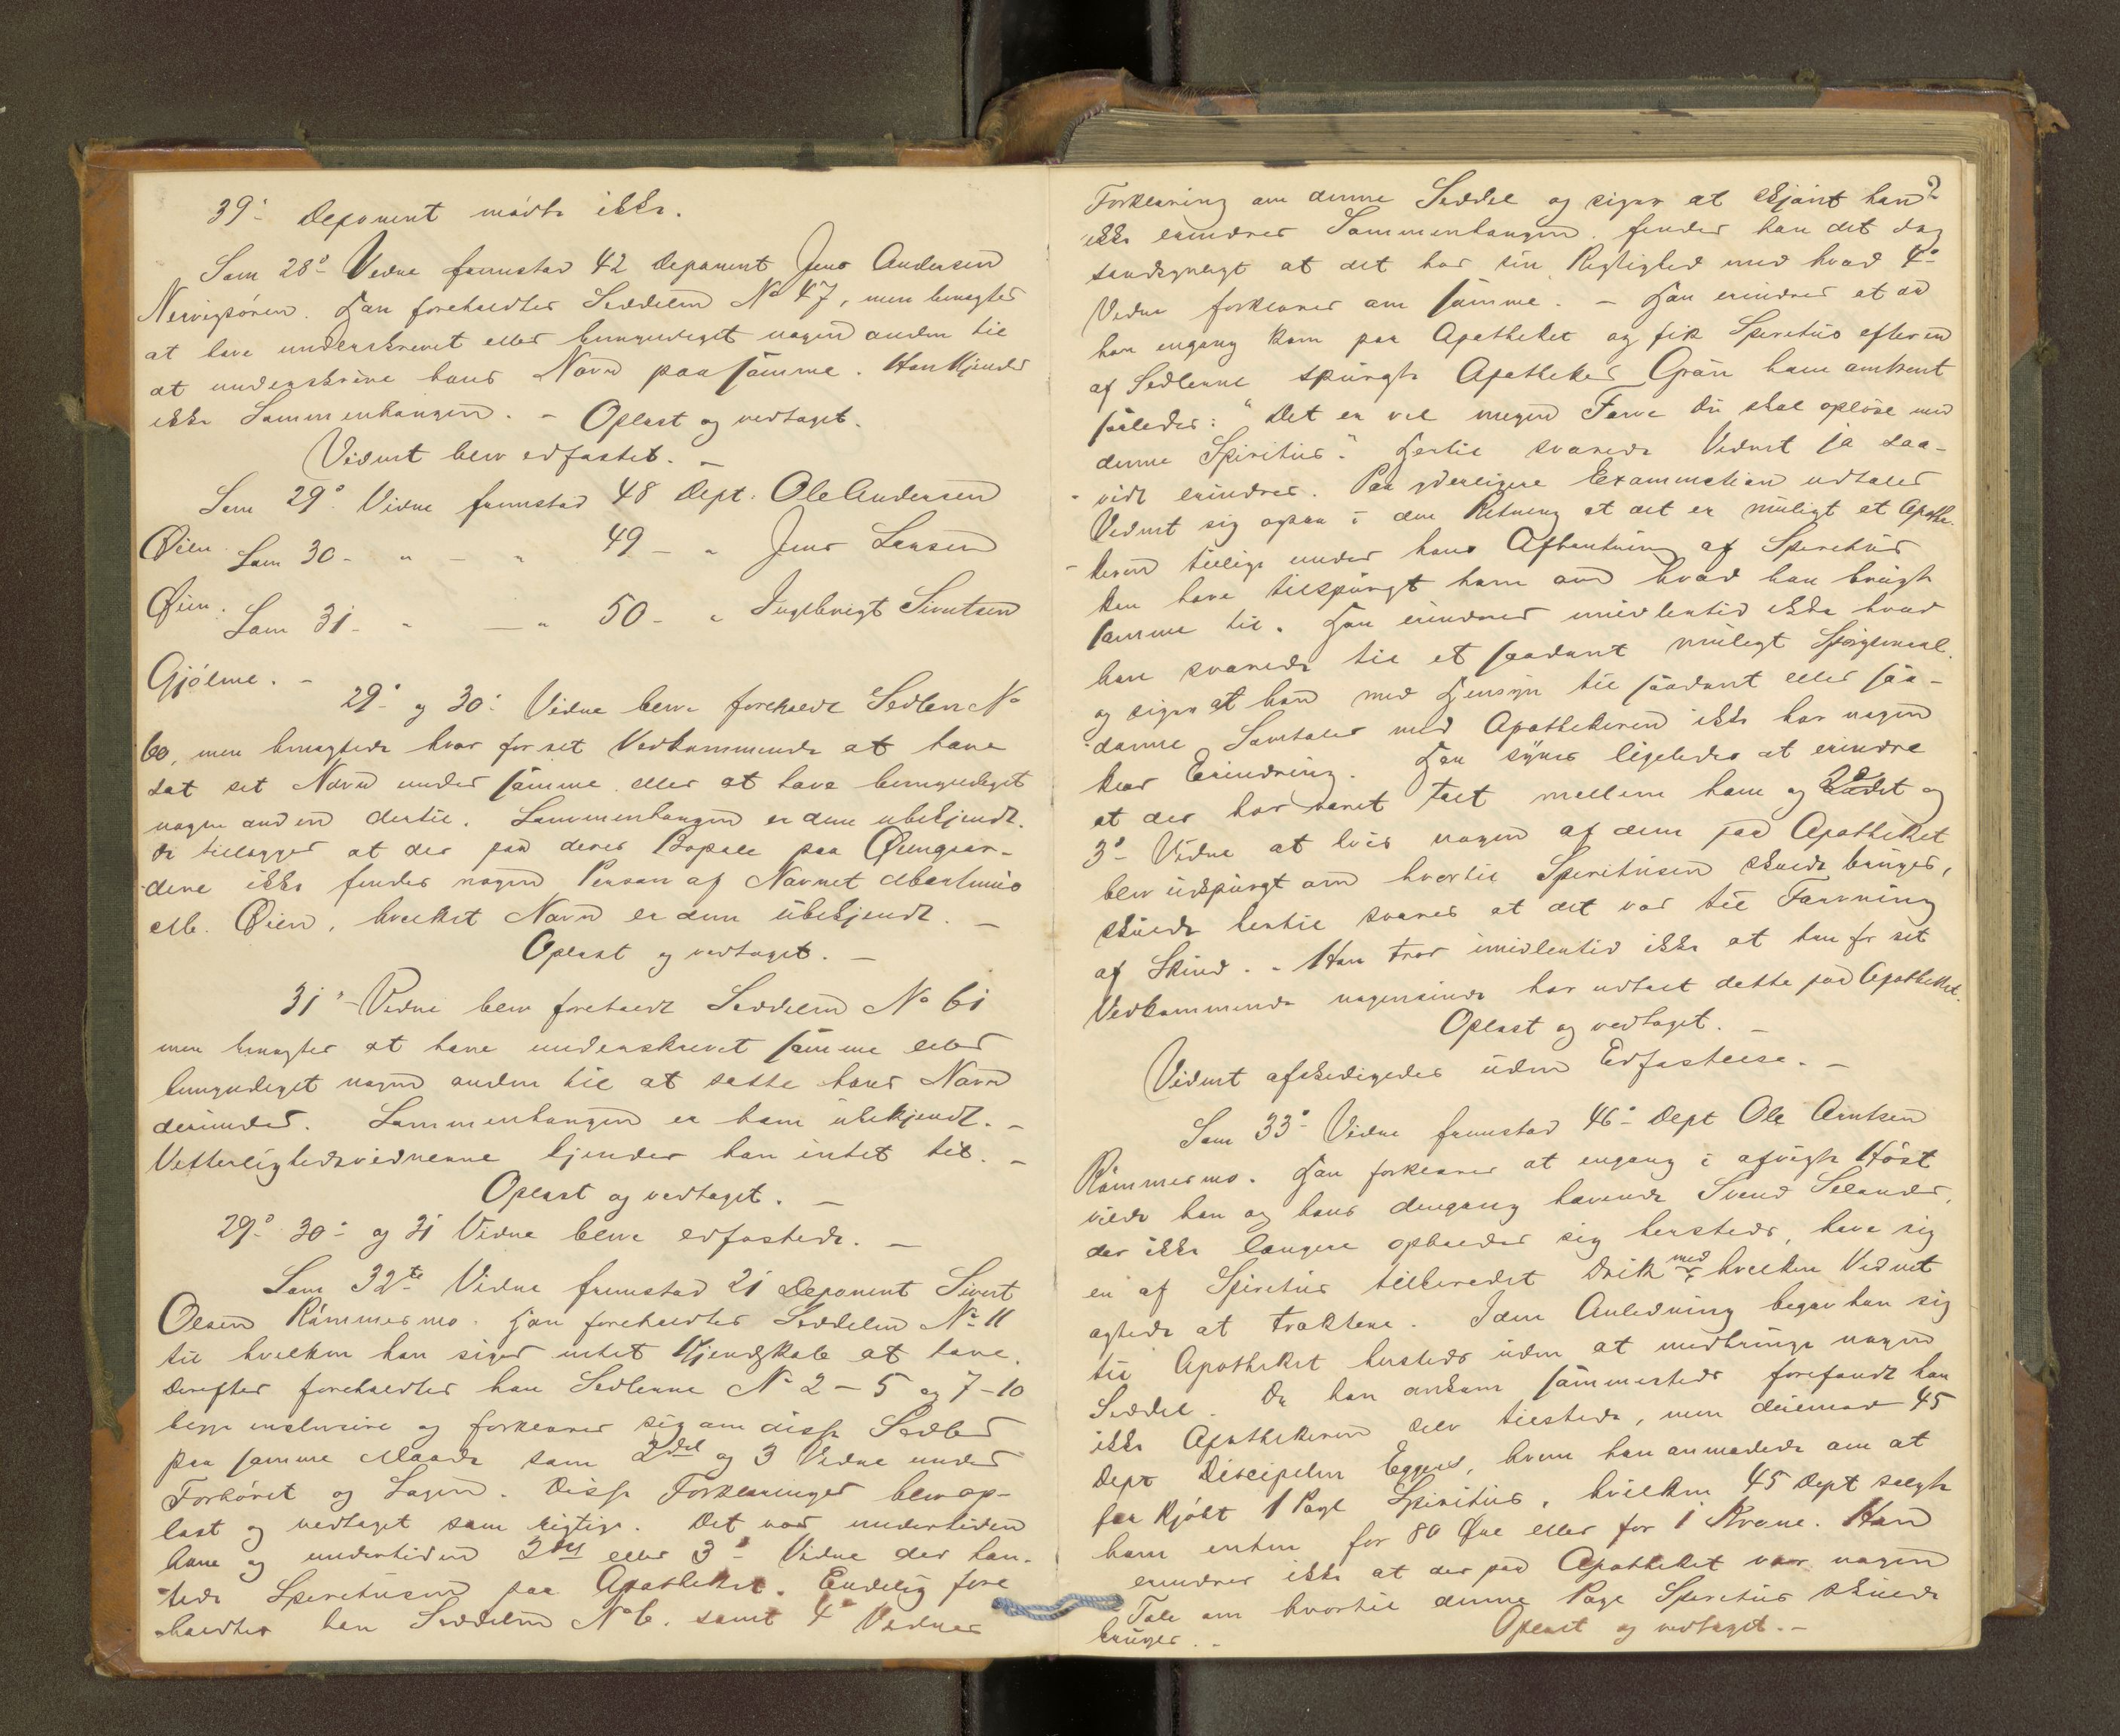 39- Deponent mødte ikke.
Som 28- Vidne fremstod 42 Deponent Jens Andersen
Nervigsøren. Han foreholdtes Seddelen No 47, men benegter
at have underskrevet eller bemyndiget nogen anden til
at underskrive hans Navn paa samme. Han kjender
ikke Sammenhængen. - Oplæst og vedtaget.
Vidnet blev edfæstet. -
Som 29- Vidne fremstod 48 Dept. Ole Andersen
Øien. Som 30- " - " 49 - " Jens Larsen
Øien. Som 31- " - " 50- " Ingebrigt Sivertsen
Gjølme. -
29- og 30- Vidne blev foreholdt Sedlen No
60, men benegtede hver for sit Vedkommende at have
sat sit Navn under samme eller at have bemyndiget
nogen anden dertil. Sammenhængen er dem ubekjendt.
De tillægger at der paa deres Bopæl paa Øiengaar-
dene ikke findes nogen Person af Navnet
M. Øien, hvilket Navn er dem ubekjendt. -
Oplæst og vedtaget. -
31- Vidne blev foreholdt Seddelen No 61
men benegter at have underskrevet samme eller
bemyndiget nogen anden til at sætte hans Navn
derunder. Sammenhængen er ham ubekjendt. -
Vitterlighedsvidnerne kjender han intet til. -
Oplæst og vedtaget. -
29- 30- og 31 Vidne blev edfæstede. -
Som 32te Vidne fremstod 21 Deponent Sivert
Olsen Rømmesmo. Han foreholdtes Seddelen No 11
til hvilken han siger intet Kjendskab at have.
Derefter foreholdtes han Sedlerne No 2-5 og 7-10
begge inclusive og forklarer sig om disse Sedler
paa samme Maade som 2det og 3 Vidne under
Forhøret og Sagen. Disse Forklaringer blev op-
læst og vedtaget som rigtige. Det var undertiden
ham og undertiden 2det eller 3- Vidne der hen-
tede Spiritusen paa Apotheket. Endelig fore
holdtes han Seddelen No 6. samt 4- Vidnes
2
Forklaring om denne Seddel og siger at skjønt han
ikke erindrer Sammenhængen finder han det dog
sandsynligt at det har sin Rigtighed med hvad 4-
Vidne forklarer om samme. - Han erindrer at da
han engang kom paa Apotheket og fik Spiritus efter en
af Sedlerne spurgte Apotheker Grøn ham omtrent
saaledes: "Det er vel megen Farve Du skal opløse med
denne Spiritus." Hertil svarede Vidnet ja saa-
vidt erindres. Paa yderligere Examination udtaler
Vidnet sig ogsaa i den Retning at det er muligt at Apothe-
keren tillige under hans Afhentning af Spiritus
kan have tilspurgt ham om hvad han brugte
samme til. Han erindrer imidlertid ikke hvad
han svarede til et saadant muligt Spørgsmaal.
og siger at han med Hensyn til saadant eller saa-
danne Samtaler med Apothekeren ikke har nogen
klar Erindring. Han synes ligeledes at erindre
at der har været talt mellem ham og 2det og
3- Vidne at hvis nogen af dem paa Apotheket
blev udspurgt om hvortil Spiritusen skulde bruges,
skulde hertil svares at det var til Farvning
af Skind. - Han tror imidlertid ikke at han for sit
Vedkommende nogensinde har udtalt dette paa Apotheket.
Oplæst og vedtaget. -
Vidnet afskedigedes uden Edfæstelse. -
Som 33- Vidne fremstod 46- Dept Ole Arntsen
Rømmesmo. Han forklarer at engang i afvigte Høst
vilde han og hans dengang havende Svend Selander,
der ikke længere opholder sig hersteds, have sig
en af Spiritus tilberedet Drik med hvilken Vidnet
agtede at traktere. I den Anledning begav han sig
til Apotheket hersteds uden at medbringe nogen
Seddel. Da han ankom sammesteds forefandt han
ikke Apothekeren selv tilstede, men derimod 45
Dept Discipelen Eggers, hvem han anmodede om at
faa kjøbt 1 Pægl Spiritus, hvilken 45 Dept solgte
ham enten for 80 Øre eller for 1 Krone. Han
erindrer ikke at der paa Apotheket var nogen
Tale om hvortil denne Pægl Spiritus skulde
bruges. -
Oplæst og vedtaget. -